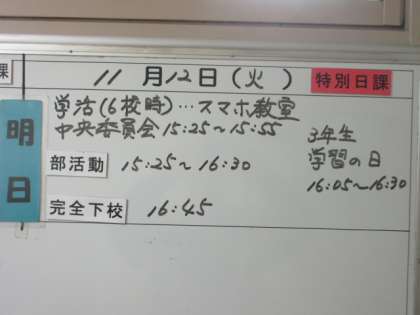 課
11月12日(火) 特別日課
明日
学活(6校時)…スマホ教室
中央委員会15:25~15:55
3年生
学習の日
16:05~16:30
部活動 15:25~16:30
完全下校 16:45